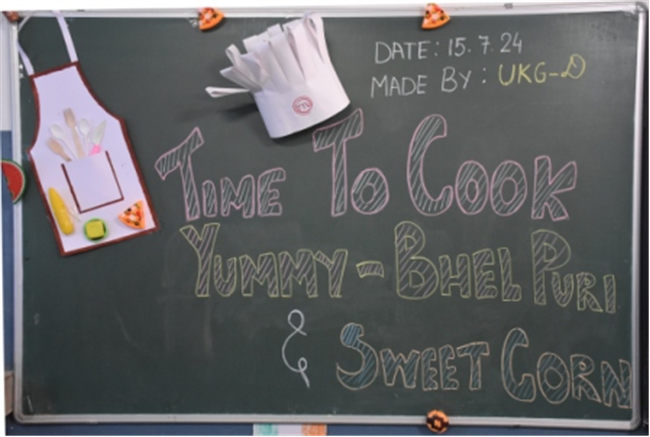 DATE: 15.7.24
MADE BY: UKG-D
TIME TO COOK
YUMMY-BHEL PURI
& SWEET CORN